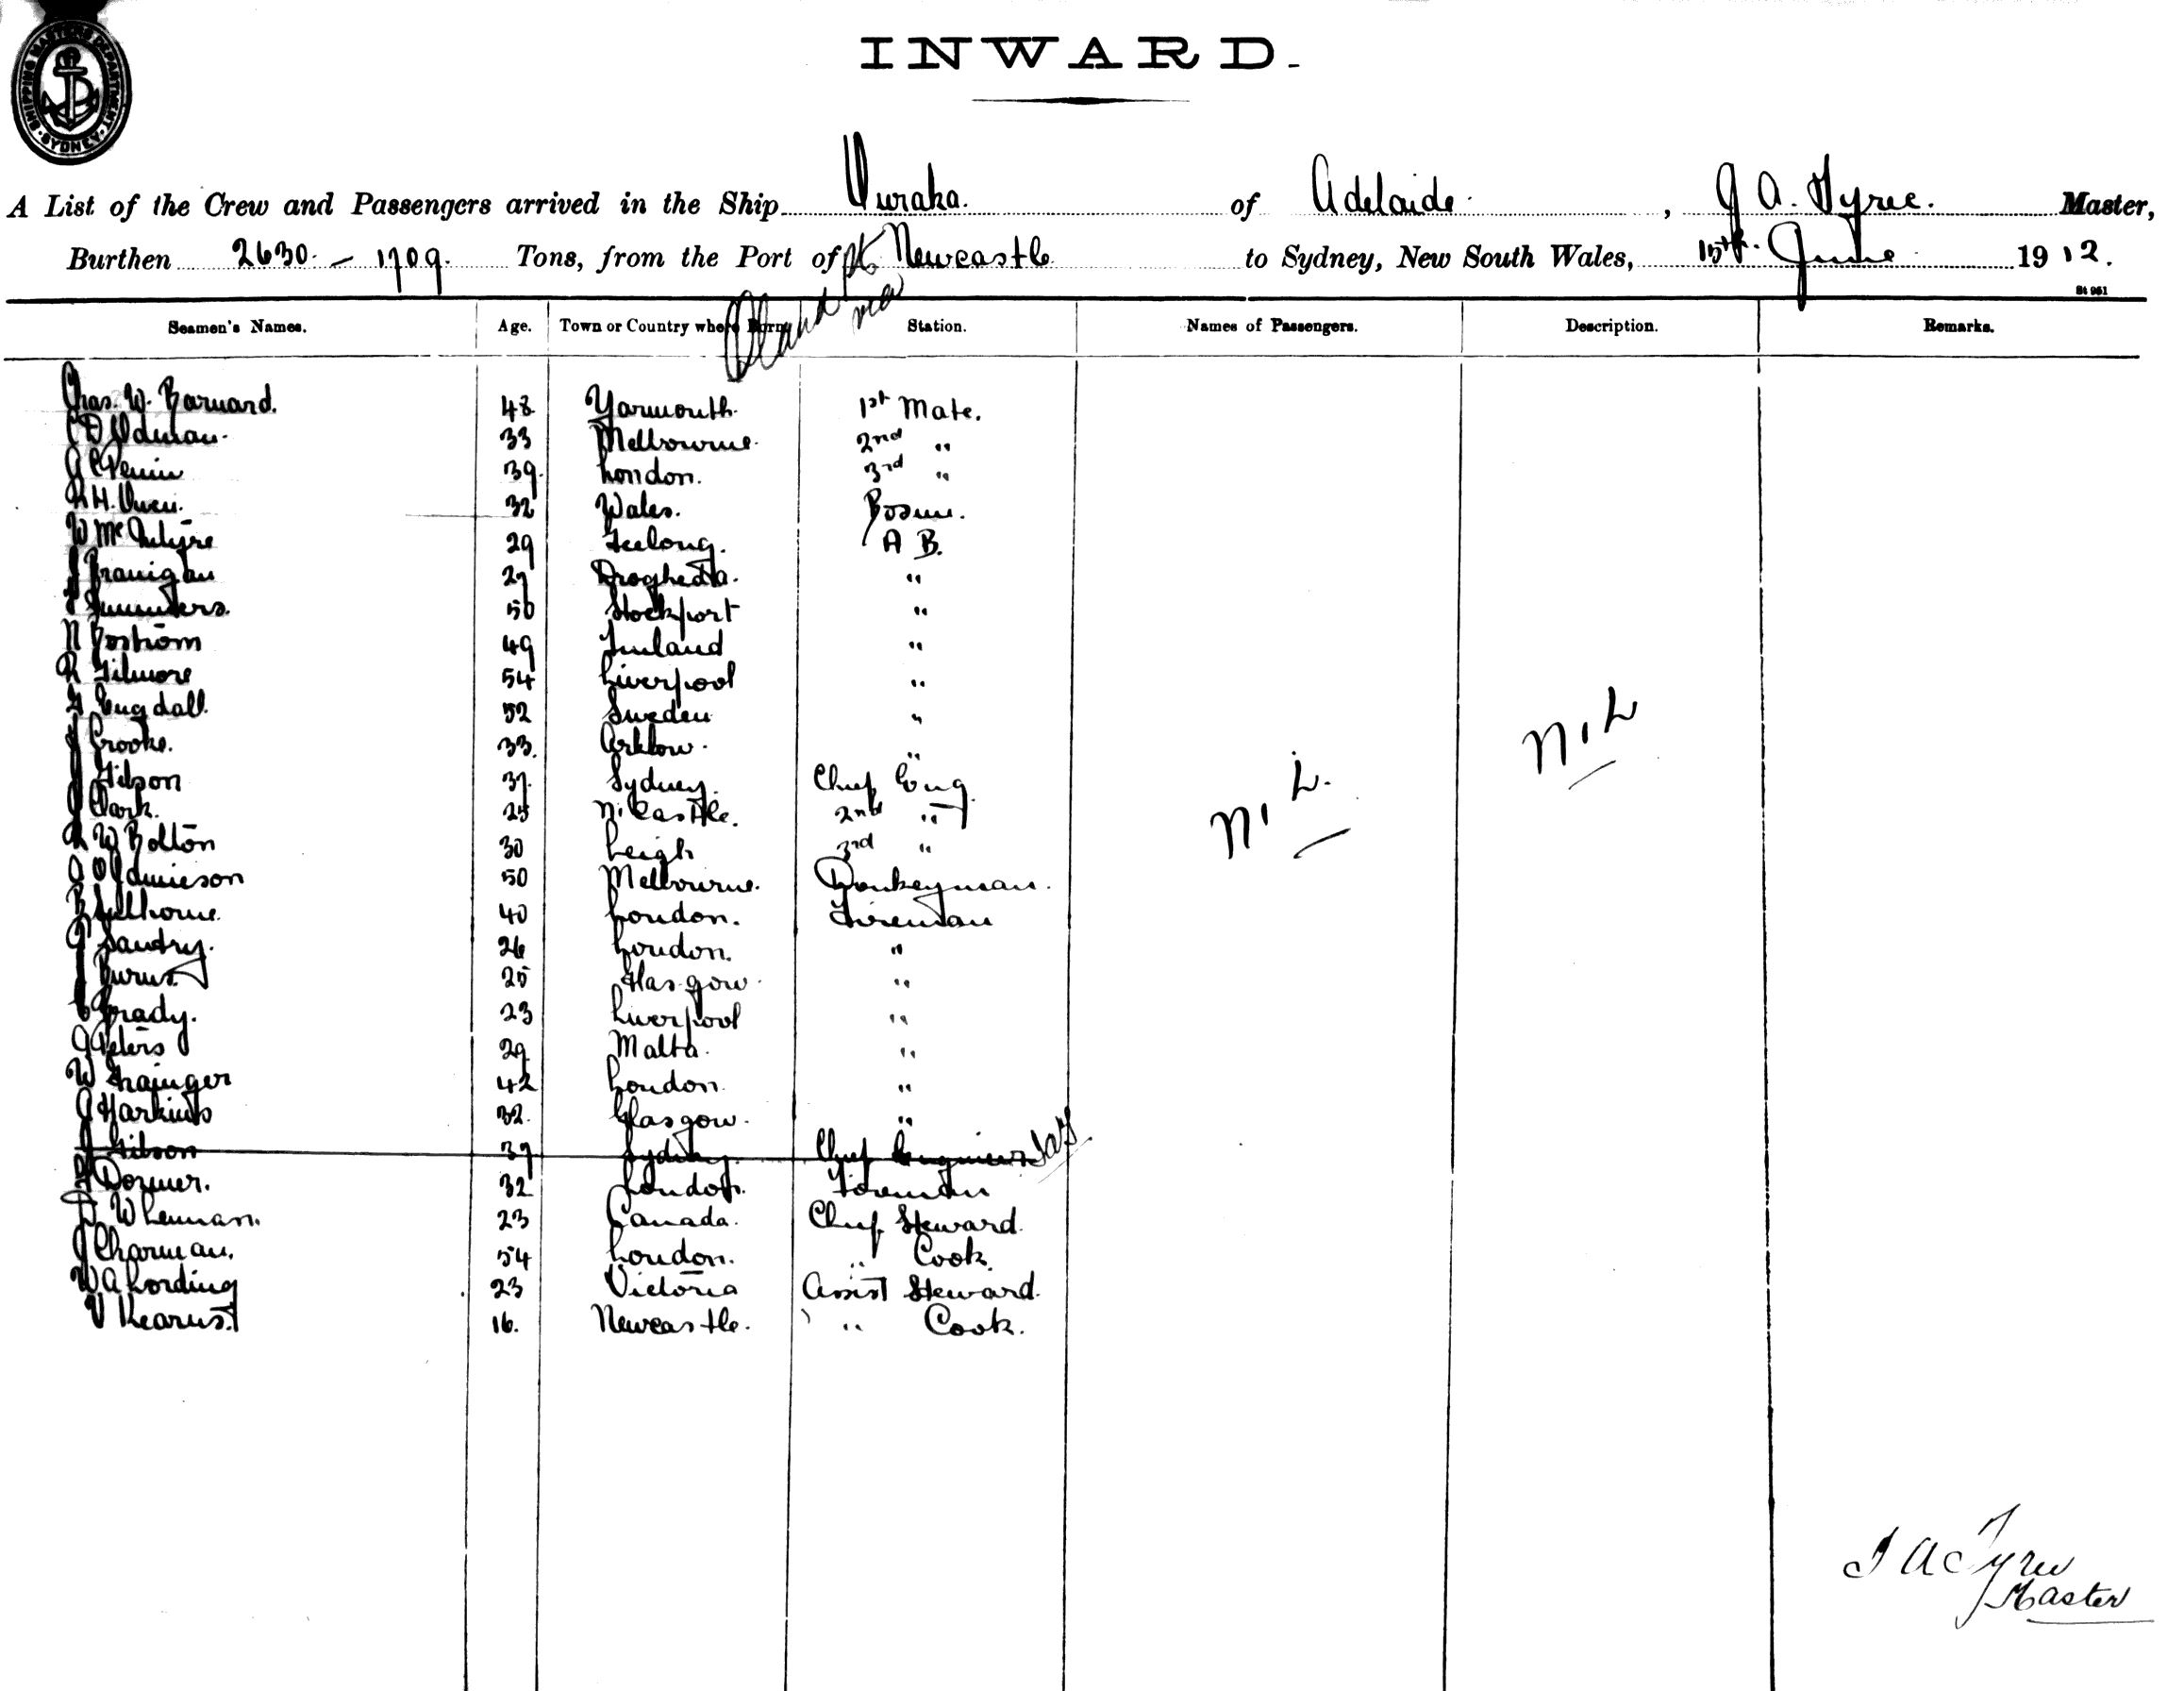 SHIPPING MASTERS DEPARTMENT SYDNEY
INWARD.
A List of the Crew and Passengers arrived in the Ship Ouraka. of Adelaide, J A. Tyree. Master,
Burthen 2630 - 1709. Tons, from the Port of Newcastle to Sydney, New South Wales, 15th June 1912.
via
St 961
Seamen's Names. Age. Town or Country where Born. Station. Names of Passengers. Description. Remarks.
Chas. W. Barnard. 48 Yarmouth. 1st Mate.
33 Melbourne. 2nd "
39. London. 3rd "
R H. Owen. 32 Wales. Bosun.
W McIntyre 29 Geelong. A B.
J Branigan 27 Drogheda. "
Summers. 50 Stockport "
N Bostrom 49 Finland "
R Gilmore 54 Liverpool "
G Engdall. 52 Sweden "
J Crooke. 33. Arklow. "
J Gilson 37. Sydney. Chief Eng.
J Clark. 25 N. Castle. 2nd "
R W Bolton 30 Leigh 3rd "
50 Melbourne. Donkeyman.
40 London. Fireman
26 London. "
J Burns. 25 Glasgow. "
Brady. 23 Liverpool "
J Peters 29 Malta. "
W Grainger 42 London. "
J Harkins 32. Glasgow. "
J Gilson 37 Sydney. Chief Engineer JAT
Dormer. 32 London. Fireman
D. W Lennan. 23 Canada. Chief Steward.
J Charman. 54 London. " Cook.
W A Lording 23 Victoria Assist Steward.
V Kearns. 16. Newcastle. " Cook.
NIL
NIL.
J A Tyree
Master